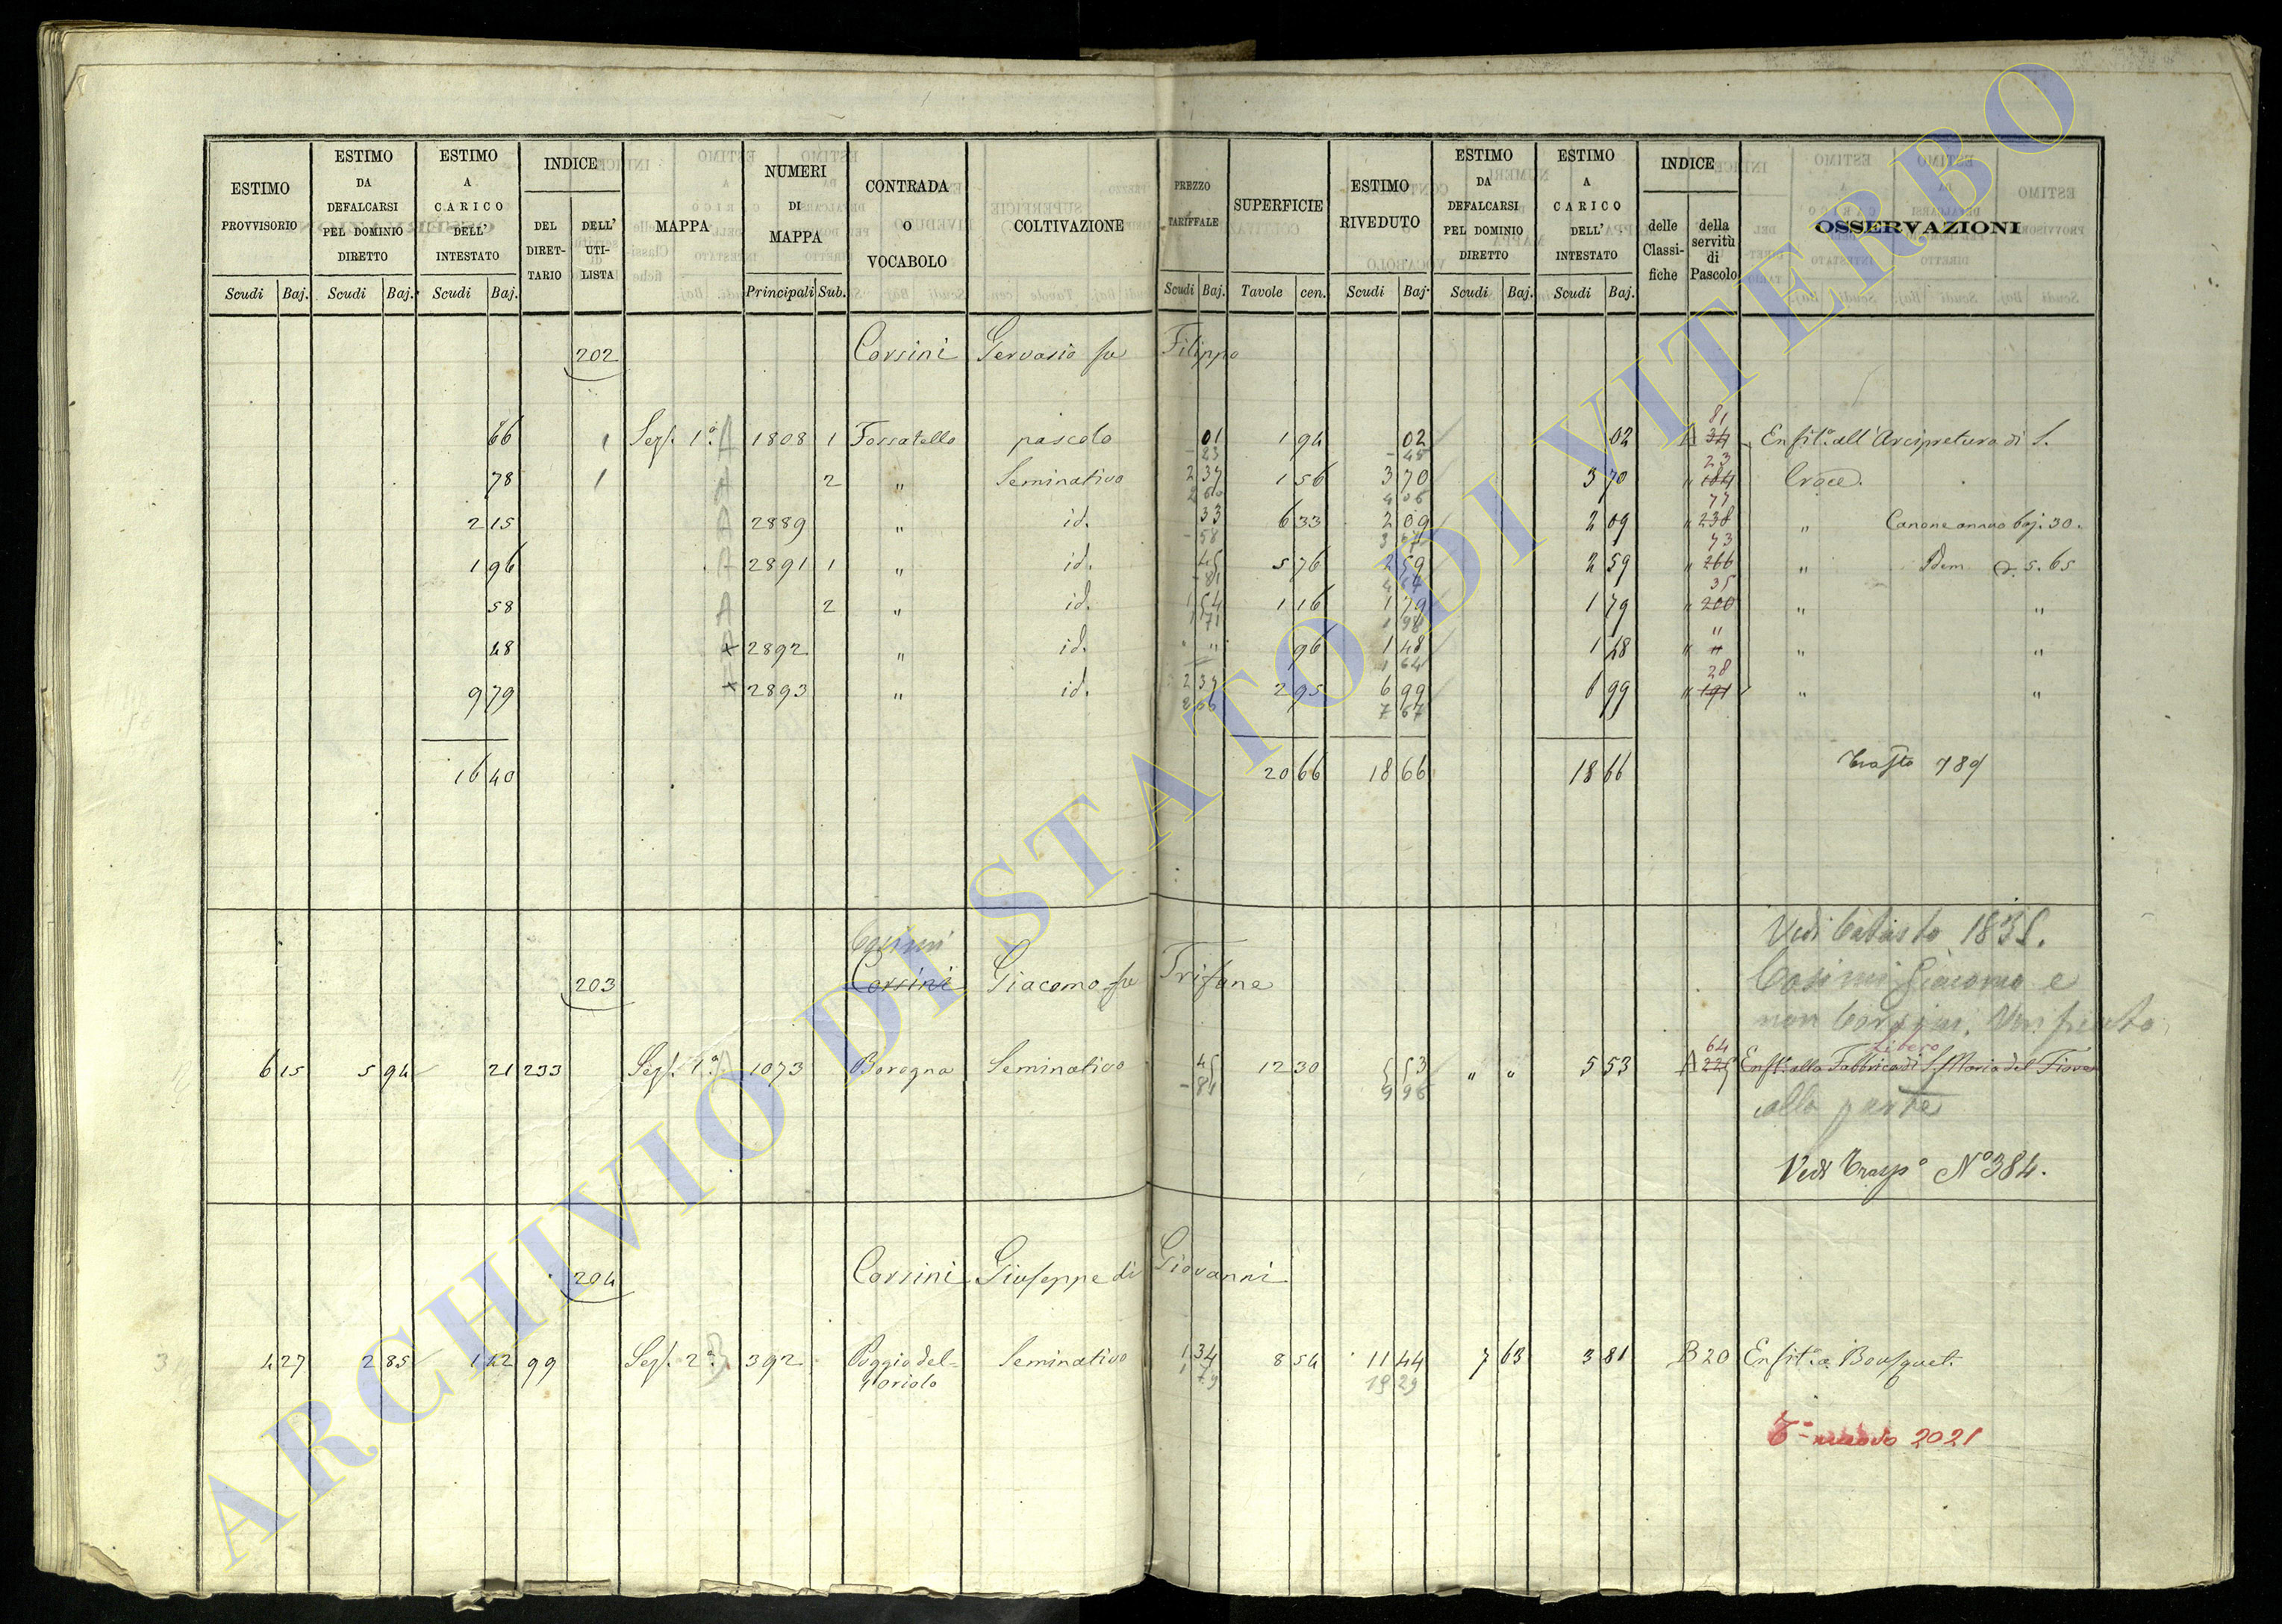 ESTIMO PROVVISORIO
ESTIMO DA DEFALCARSI PEL DOMINIO DIRETTO
ESTIMO A CARICO DELL' INTESTATO
INDICE
DEL DIRET-TARIO
DELL' UTI-LISTA
MAPPA
NUMERI DI MAPPA
CONTRADA O VOCABOLO
COLTIVAZIONE
PREZZO TARIFFALE
SUPERFICIE
ESTIMO RIVEDUTO
ESTIMO DA DEFALCARSI PEL DOMINIO DIRETTO
ESTIMO A CARICO DELL' INTESTATO
INDICE
delle Classi-fiche
della servitù di Pascolo
OSSERVAZIONI
Scudi Baj. Scudi Baj. Scudi Baj. Principali Sub. Scudi Baj. Tavole cen. Scudi Baj. Scudi Baj. Scudi Baj.
202 Corsini Gervasio fu Filippo
81
66 1 Sez. 1ª A 1808 1 Fossatello pascolo 01 1 94 02 02 A 34 Enfit. all'Arcipretura di S.
- 23 - 45 23
78 1 A 2 " Seminativo 2 37 1 56 3 70 3 70 " 184 Croce.
2 60 4 06 77
2 15 A 2889 " id. 33 6 33 2 09 2 09 " 238 " Canone annuo baj. 30.
- 58 3 67 73
1 96 A 2891 1 " id. 45 5 76 2 59 2 59 " 266 " Idem 5. 65
- 81 35
58 A 2 " id. 1 54 1 16 1 79 1 79 " 200 " "
1 71 1 98 "
48 x 2892 " id. " 96 1 48 1 48 " " " "
1 64 28
9 79 x 2893 " id. 2 37 2 95 6 99 6 99 " 191 " "
2 60 7 67
16 40 20 66 18 66 18 66 Trasto 789
Vedi Catasto 1835.
Cosimi
203 Corsini Giacomo fu Trifone Cosimi Giacomo e
non Corsini. Verificato
64 Libero
6 15 5 94 21 233 Sez. 1ª 1073 Boregna Seminativo 45 12 30 5 53 " " 5 53 A 225 Enfit. alla Fabbrica di S. Maria del Fiore
- 81 9 96
alla parte
Vedi Trasp° N° 384.
204 Corsini Giuseppe di Giovanni
3 4 27 2 85 1 42 99 Sez. 2ª 392 Poggio del- Seminativo 1 34 8 54 11 44 7 63 3 81 B 20 Enfit. a Bousquet.
l'oriolo 1 79 19 29
T= nuovo 2021
ARCHIVIO DI STATO DI VITERBO